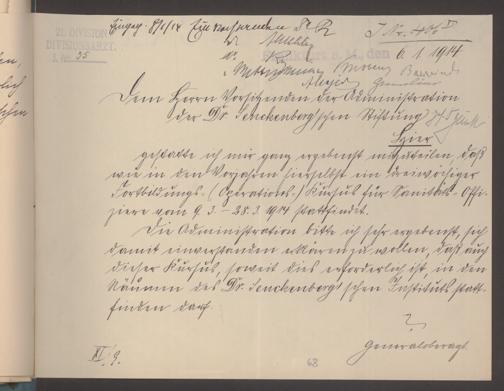 21. DIVISION
DIVISIONSARZT.
35
Eingeg. 8/1/14
Frankfurt a. M., den
6. 1. 1914
Dem Herrn Vorsitzenden der Administration
der Dr. Senckenberg'schen Stiftung
Hier
gestatte ich mir ganz ergebenst mitzuteilen, daß
wie in den Vorjahren hierselbst ein dreiwöchiger
Fortbildungs- (Operations-) Kursus für Sanitäts-Offi-
ziere vom 9. 3. – 28. 3. 1914 stattfindet.
Die Administration bitte ich sehr ergebenst, sich
damit einverstanden erklären zu wollen, daß auch
dieser Kursus, soweit dies erforderlich ist, in den
Räumen des Dr. Senckenberg'schen Instituts statt-
finden darf.
Generaloberarzt
XI, 9.
68